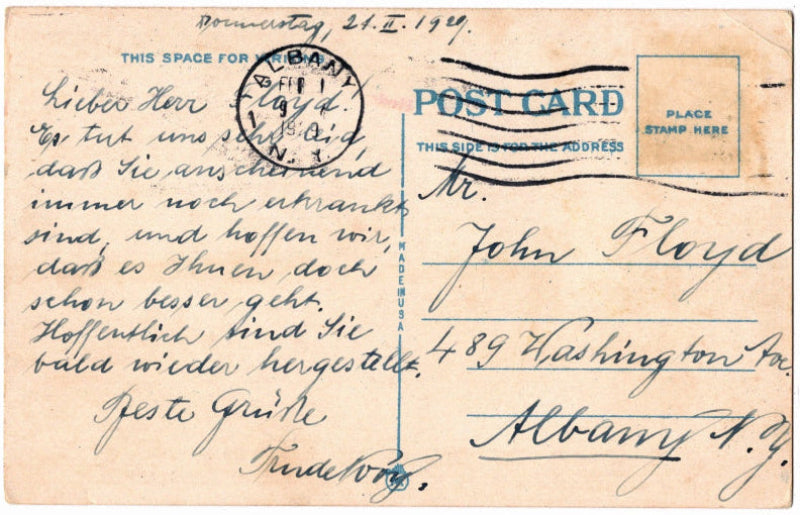 Donnerstag, 21. II. 1929.
THIS SPACE FOR WRITING
ALBANY
FEB
9
N.Y.
Lieber Herr Floyd!
Es tut uns sehr leid,
daß Sie anscheinend
immer noch erkrankt
sind, und hoffen wir,
daß es Ihnen doch
schon besser geht.
Hoffentlich sind Sie
bald wieder hergestellt.
Beste Grüße
POST CARD
THIS SIDE IS FOR THE ADDRESS
PLACE
STAMP HERE
MADE IN USA
Mr.
John Floyd
489 Washington Ave.
Albany N.Y.